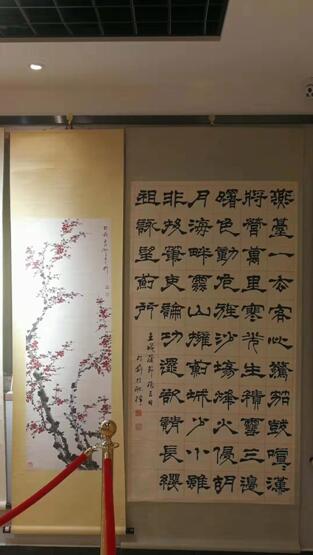 燕臺一去客心驚笳鼓喧〻漢
將營萬里寒光生積雪三邊
曙色動危旌沙場烽火侵胡
月海畔雲山擁薊城少小雖
非投筆吏論功還欲請長纓
祖詠望薊